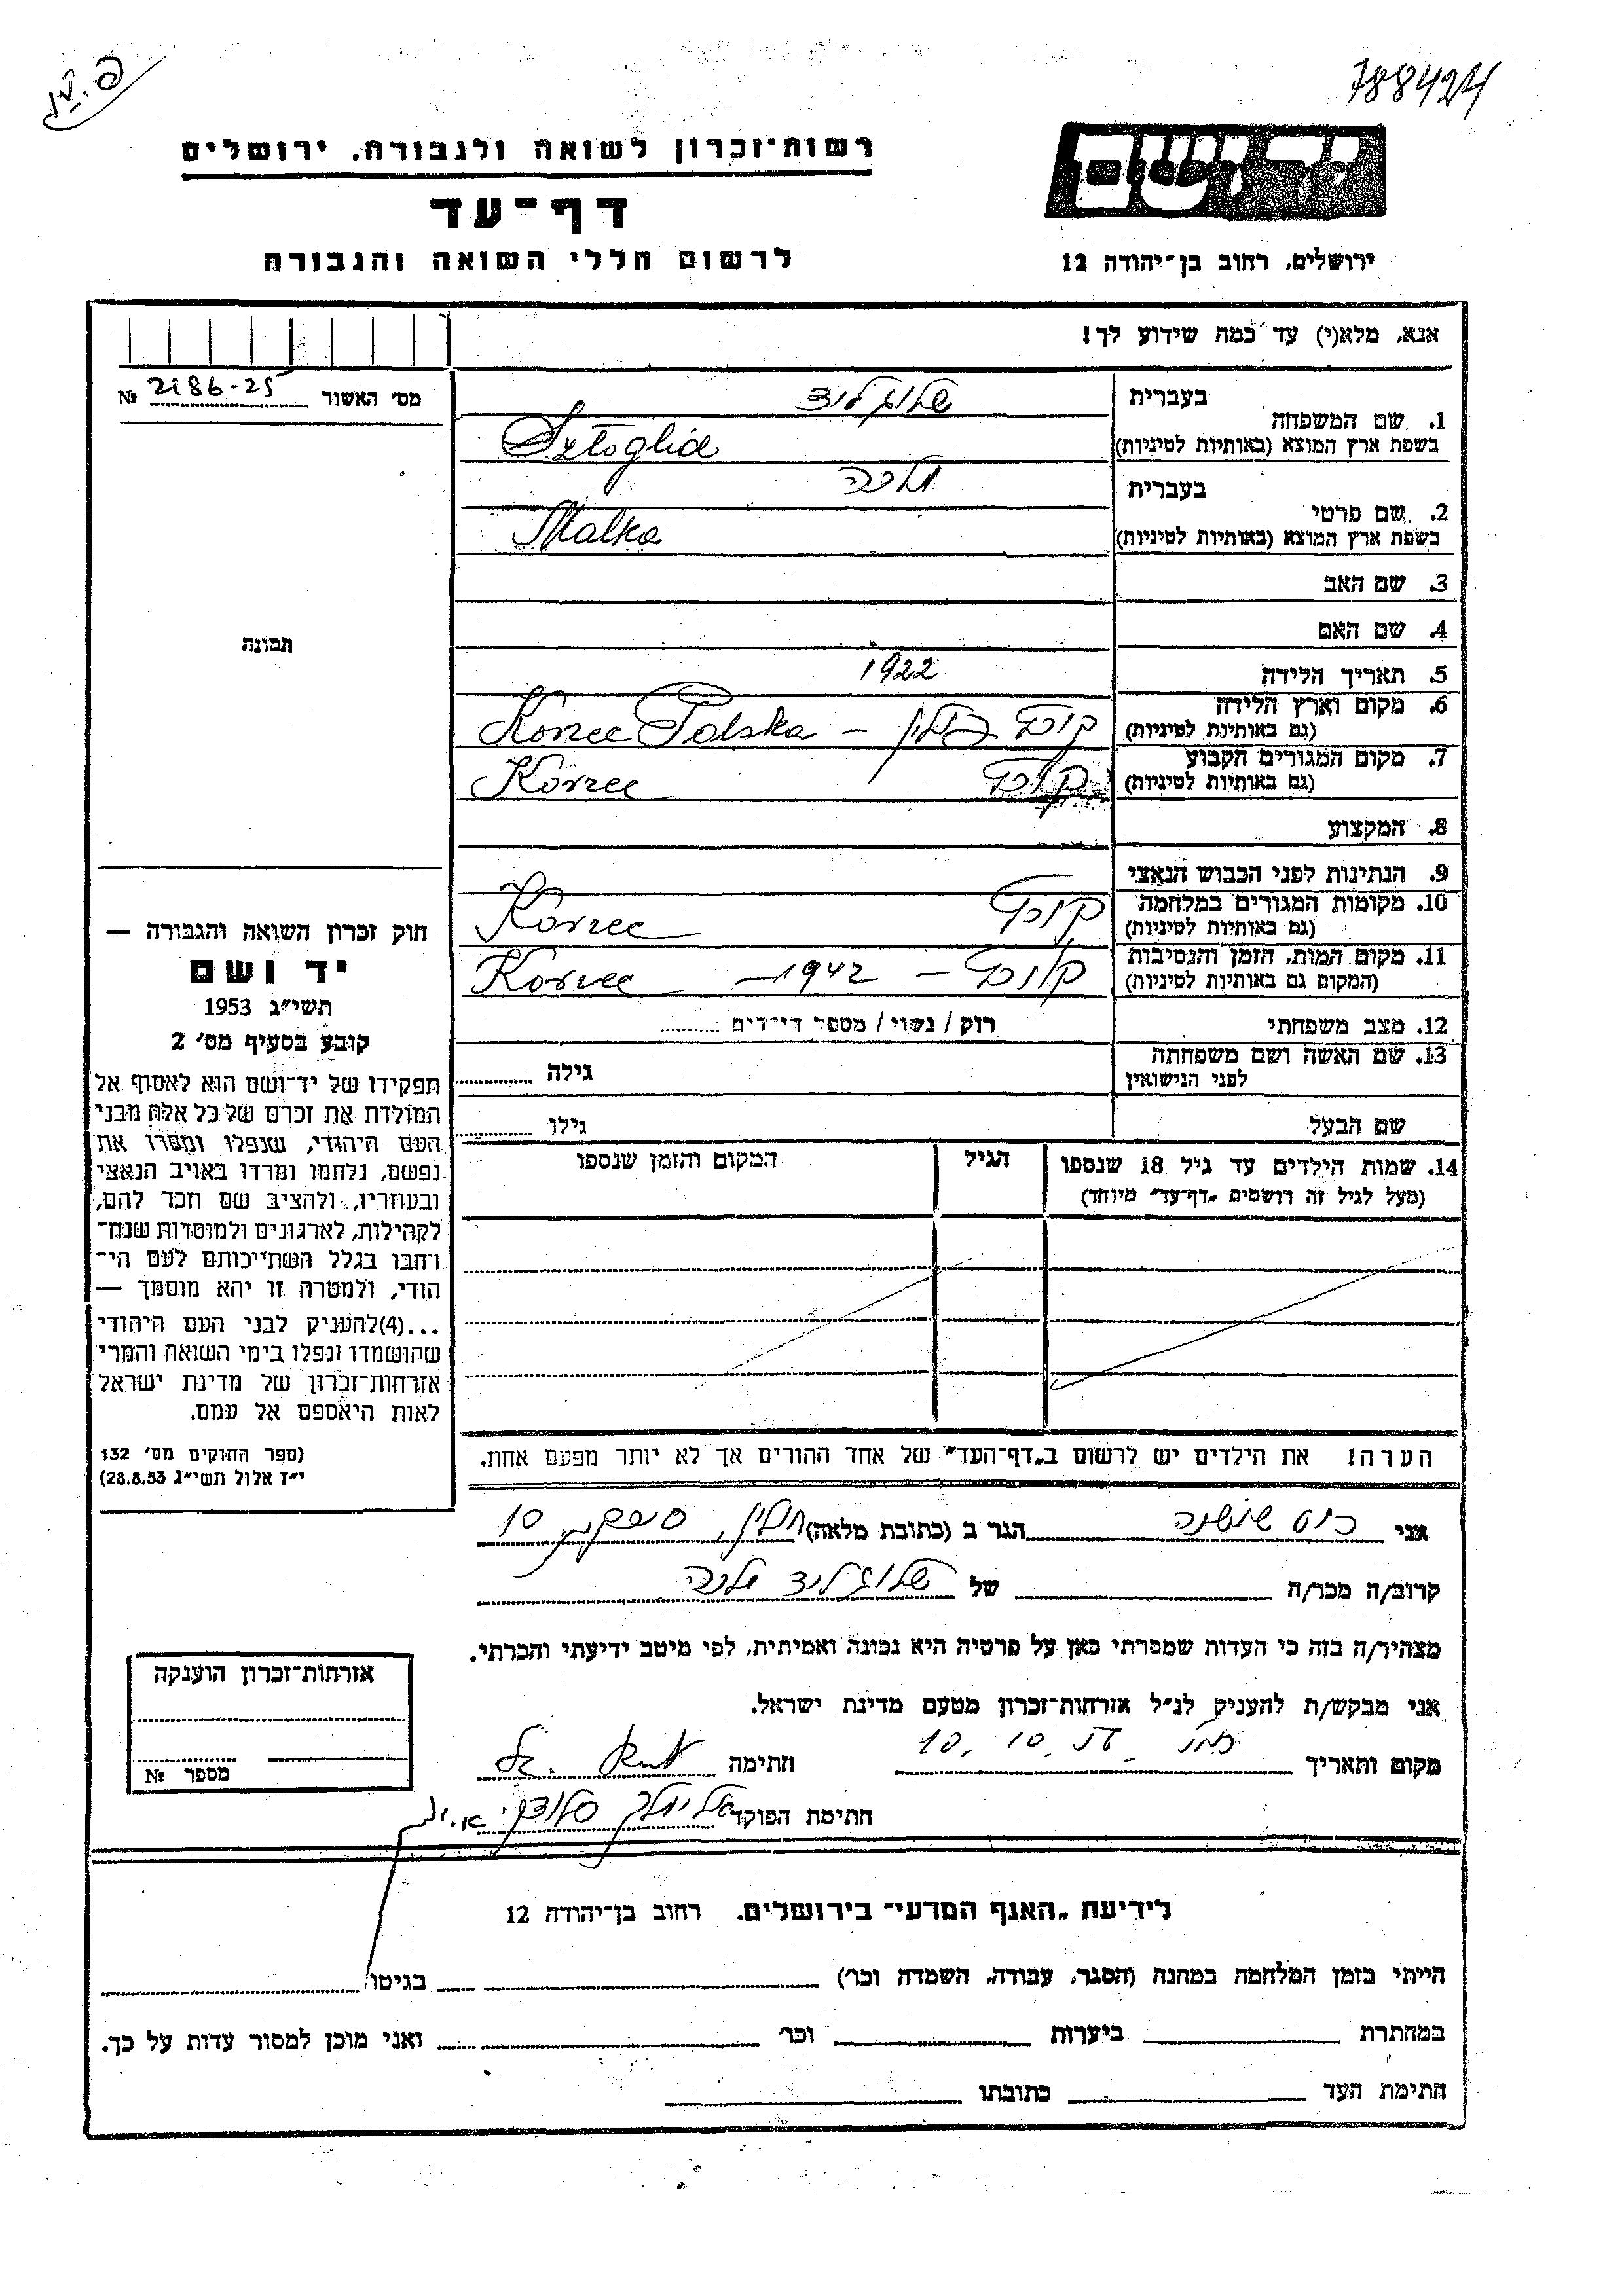 788424
רשות־זכרון לשואה ולגבורה, ירושלים
יד ושם
דף־עד
לרשום חללי השואה והגבורה
ירושלים, רחוב בן־יהודה 12
אנא, מלא(י) עד כמה שידוע לך!
מס׳ האשור 2186-25 №
בעברית
1. שם המשפחה
בשפת ארץ המוצא (באותיות לטיניות) Sztoglid
בעברית מלכה
2. שם פרטי
בשפת ארץ המוצא (באותיות לטיניות) Malka
3. שם האב
4. שם האם
תמונה
5. תאריך הלידה 1922
6. מקום וארץ הלידה
(גם באותיות לטיניות) קורץ פולין – Korzec Polska
7. מקום המגורים הקבוע
(גם באותיות לטיניות) קורץ Korzec
8. המקצוע
9. הנתינות לפני הכבוש הנאצי
10. מקומות המגורים במלחמה
(גם באותיות לטיניות) קורץ Korzec
11. מקום המות, הזמן והנסיבות
(המקום גם באותיות לטיניות) קורץ – 1942 – Korzec
12. מצב משפחתי רוק / נשוי / מספר הילדים
13. שם האשה ושם משפחתה
לפני הנישואין גילה
שם הבעל גילו
14. שמות הילדים עד גיל 18 שנספו הגיל המקום והזמן שנספו
(מעל לגיל זה רושמים „דף־עד״ מיוחד)
חוק זכרון השואה והגבורה —
יד ושם
תשי״ג 1953
קובע בסעיף מס׳ 2
תפקידו של יד־ושם הוא לאסוף אל
המולדת את זכרם של כל אלה מבני
העם היהודי, שנפלו ומסרו את
נפשם, נלחמו ומרדו באויב הנאצי
ובעוזריו, ולהציב שם וזכר להם,
לקהילות, לארגונים ולמוסדות שנח־
רבו בגלל השתייכותם לעם הי־
הודי, ולמטרה זו יהא מוסמך —
...(4)להעניק לבני העם היהודי
שהושמדו ונפלו בימי השואה והמרי
אזרחות־זכרון של מדינת ישראל
לאות היאספם אל עמם.
(ספר החוקים מס׳ 132
י״ז אלול תשי״ג 28.8.53)
הערה! את הילדים יש לרשום ב„דף־העד״ של אחד ההורים אך לא יותר מפעם אחת.
אני שושנה הגר ב (כתובת מלאה) 10
קרוב/ה מכר/ה של מלכה
מצהיר/ה בזה כי העדות שמסרתי כאן על פרטיה היא נכונה ואמיתית, לפי מיטב ידיעתי והכרתי.
אני מבקש/ת להעניק לנ״ל אזרחות־זכרון מטעם מדינת ישראל.
מקום ותאריך חתימה
חתימת הפוקד
אזרחות־זכרון הוענקה
מספר №
לידיעת „האגף המדעי״ בירושלים, רחוב בן־יהודה 12
הייתי בזמן המלחמה במחנה (הסגר, עבודה, השמדה וכר׳) בגיטו
במחתרת ביערות וכר׳ ואני מוכן למסור עדות על כך.
חתימת העד כתובתו